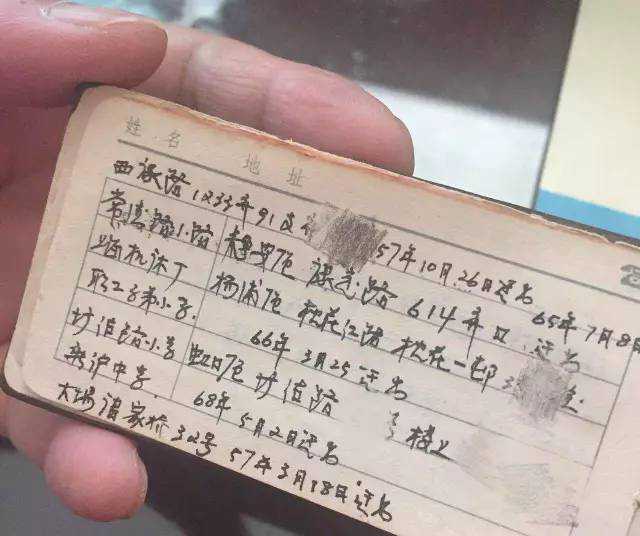 姓名 地址
西康路1233弄91支弄 57年10月26日迁出
常德路小路 静安区 康定路 614弄口 65年7月8日迁出
上海机床厂 杨浦区 松花江路 松花一邨
职工子弟小学 66年3月25迁出
长治路小学 虹口区 长治路 号楼上
新沪中学 68年5月2日迁出
大场潘家桥32号 57年3月18日迁出